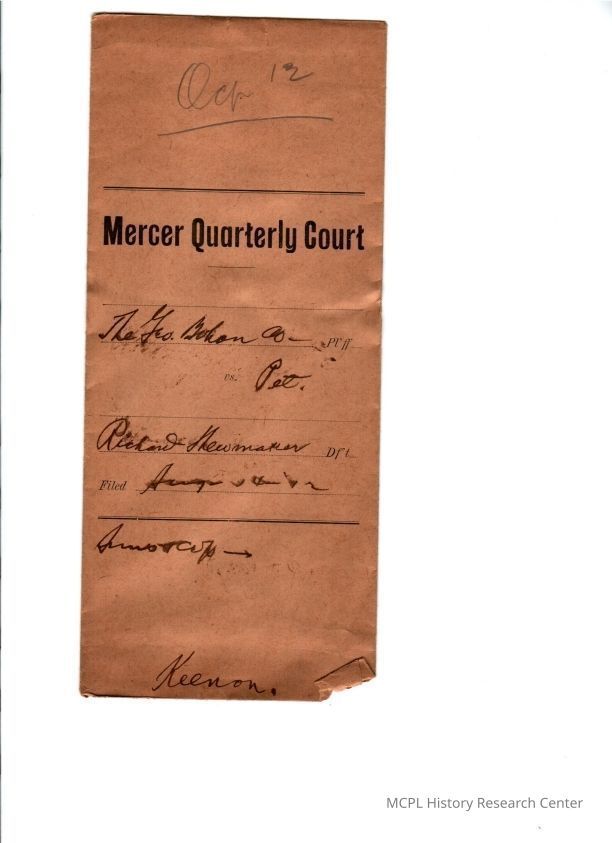 12
Mercer Quarterly Court
The Geo. Bohon Co - Pl'ff
vs. Pet.
Richard Shewmaker Df't
Filed
Keenon.
MCPL History Research Center